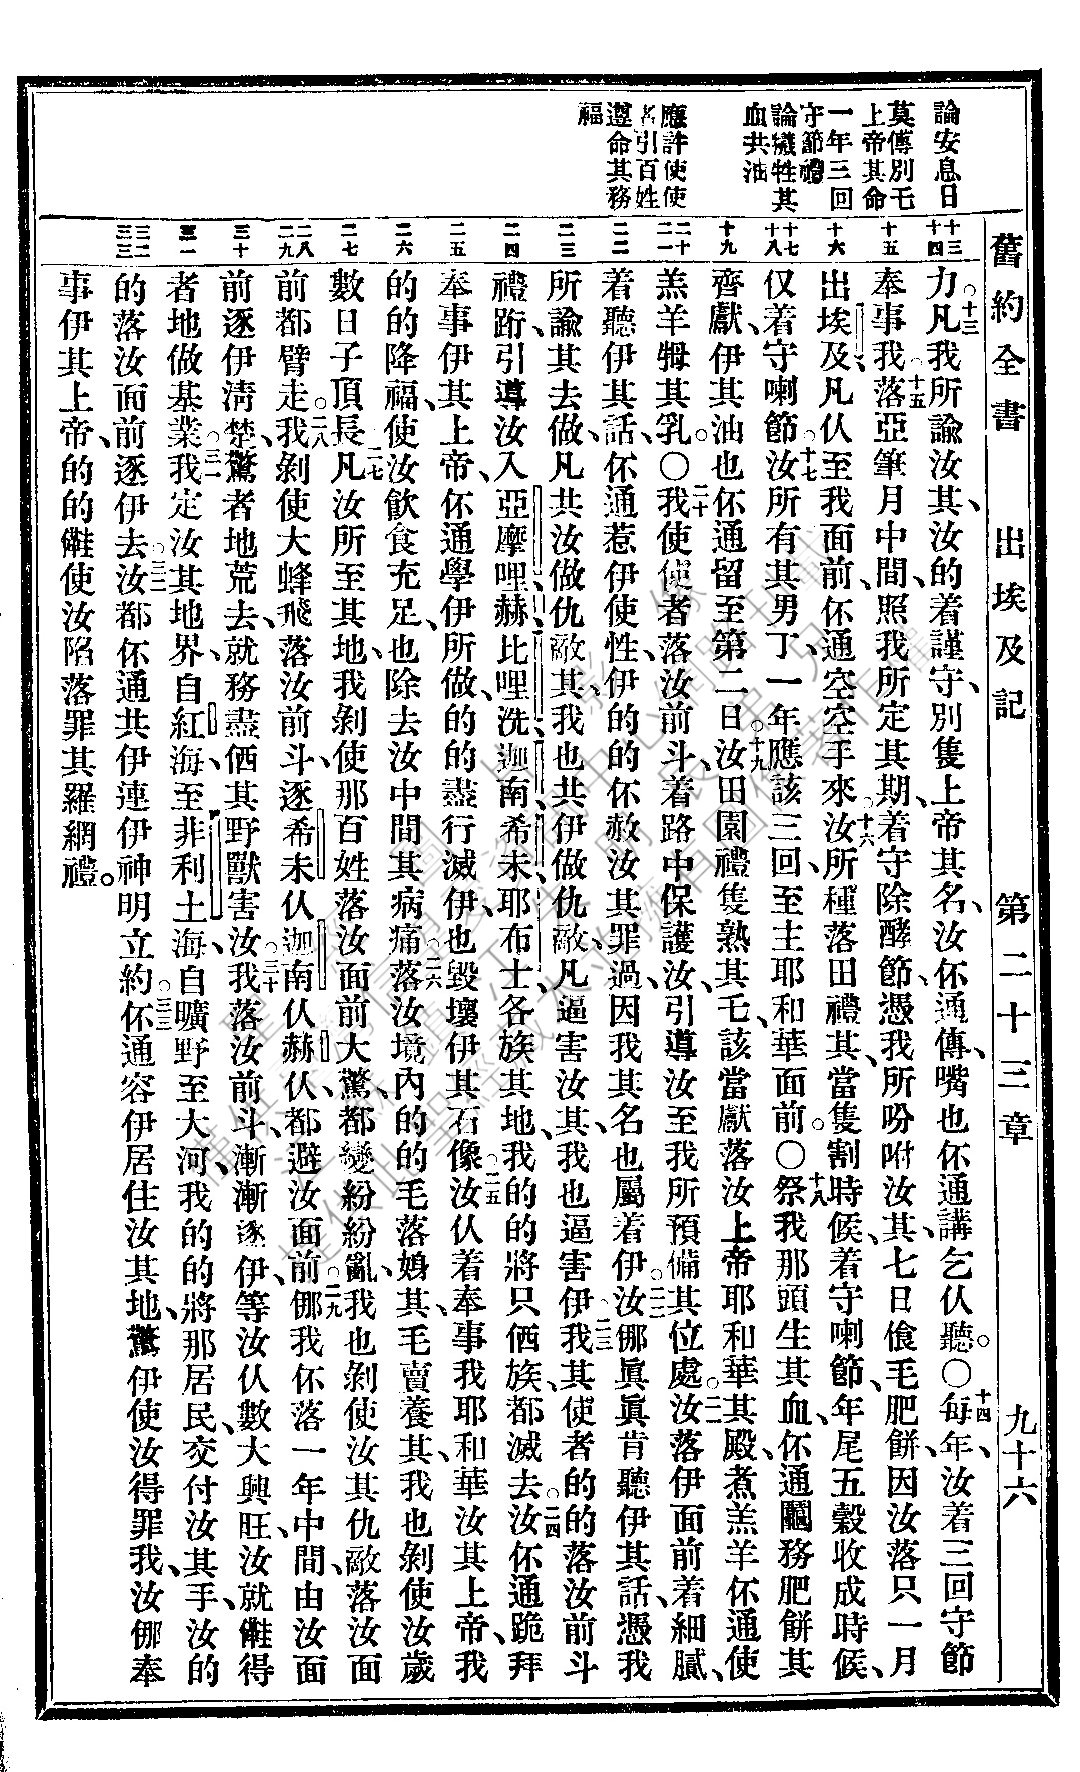 舊約全書　出埃及記　第二十三章　九十六
論安息日
莫傳別乇
上帝其命
一年三回
守節禮
論犧牲其
血共油
應許使使
者引百姓
遵命其務
福
十三
十四
十五
十六
十七
十八
十九
二十
二一
二二
二三
二四
二五
二六
二七
二八
二九
三十
三一
三二
三三
力。十三凡我所諭汝其、汝的着謹守、別隻上帝其名、汝伓通傳、嘴也伓通講乞仈聽。〇十四每年、汝着三回守節
奉事我。十五落亞筆月中間、照我所定其期、着守除酵節、憑我所吩咐汝其、七日偹毛肥餅、因汝落只一月
出埃及、凡仈至我面前、伓通空空手來。十六汝所種落田禮其、當隻割時候、着守喇節、年尾五穀收成時候、
仅着守喇節。十七汝所有其男丁、一年應該三回至主耶和華面前。〇十八祭我那頭生其血、伓通䦨務肥餅其
齊獻、伊其油也伓通留至第二日。十九汝田園禮隻熟其乇、該當獻落汝上帝耶和華其殿、煮羔羊伓通使
羔羊㛏其乳。〇二十我使使者落汝前斗、着路中保護汝、引導汝至我所預備其位處。二一汝落伊面前着細膩、
着聽伊其話、伓通惹伊使性、伊的的伓赦汝其罪過、因我其名也屬着伊。二二汝㑚眞眞肯聽伊其話、憑我
所諭其去做、凡共汝做仇敵其、我也共伊做仇敵、凡逼害汝其、我也逼害伊。二三我其使者的的落汝前斗
禮跨、引導汝入亞摩哩、赫、比哩洗、迦南、希未、耶布士各族其地、我的的將只𠉞族都滅去。二四汝伓通跪拜
奉事伊其上帝、伓通學伊所做、的的盡行滅伊、也毀壞伊其石像。二五汝仈着奉事我耶和華汝其上帝、我
的的降福、使汝飲食充足、也除去汝中間其病痛。二六落汝境內的的毛落㛂其、毛賣養其、我也剝使汝歲
數日子頂長。二七凡汝所至其地、我剝使那百姓落汝面前大驚、都變紛紛亂、我也剝使汝其仇敵、落汝面
前都臂走。二八我剝使大蜂飛落汝前斗、逐希未仈、迦南仈、赫仈、都避汝面前。二九㑚我伓落一年中間、由汝面
前逐伊清楚、驚者地荒去、就務盡𠉞其野獸害汝。三十我落汝前斗、漸漸逐伊、等汝仈數大興旺、汝就䧳得
者地做基業。三一我定汝其地界、自紅海、至非利士海、自曠野至大河、我的的將那居民、交付汝其手、汝的
的落汝面前逐伊去。三二汝都伓通共伊連伊神明立約。三三伓通容伊居住汝其地、驚伊使汝得罪我、汝㑚奉
事伊其上帝、的的䧳使汝陷落罪其羅網禮。